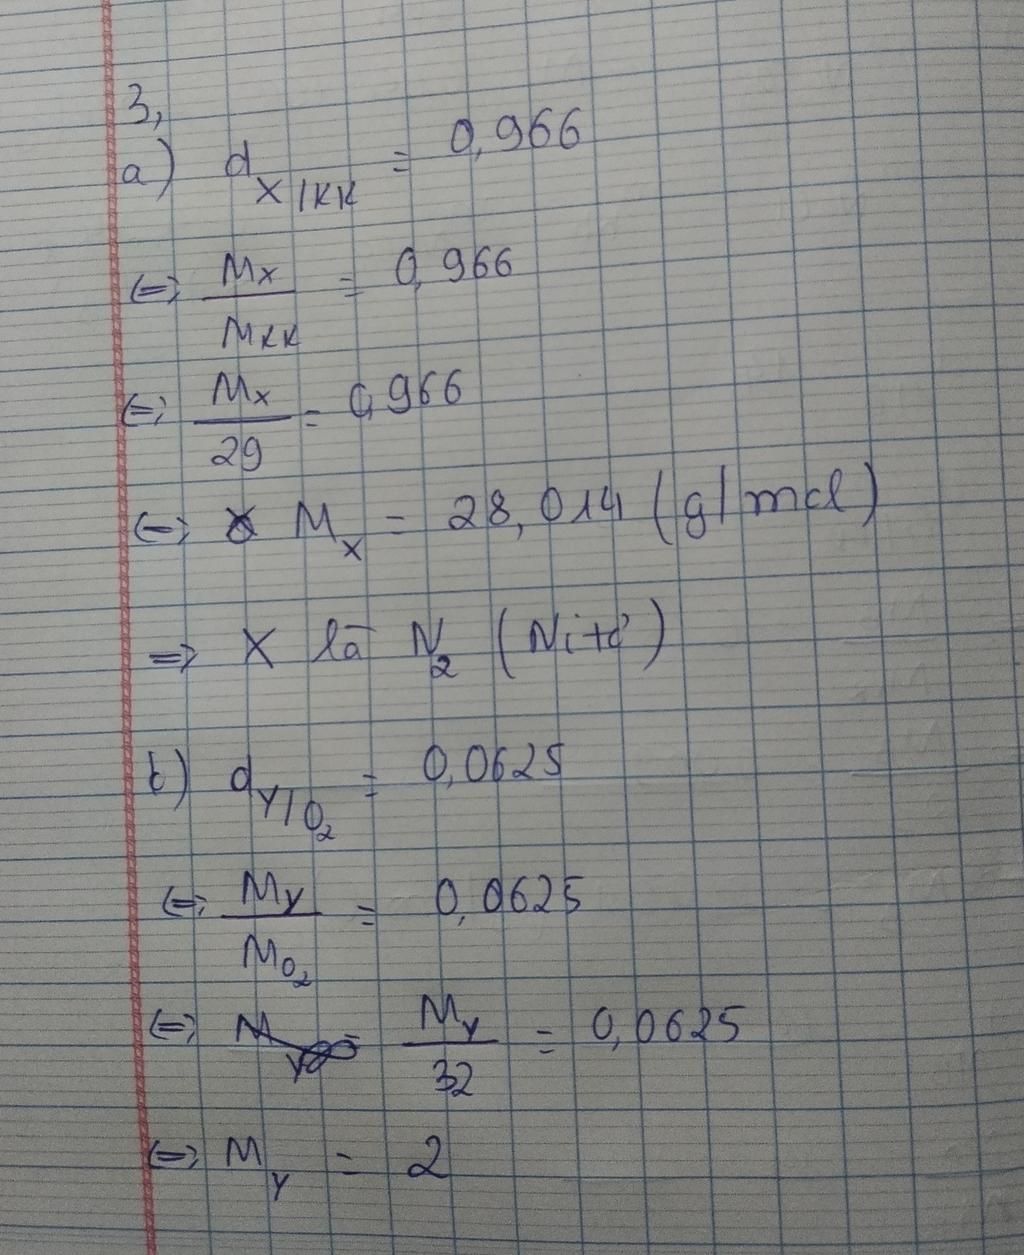 3,
a) d X/KK = 0,966
(=) Mx / MKK = 0,966
(=) Mx / 29 = 0,966
(=) Mx = 28,014 (g/mol)
=> X là N2 (Nitơ)
b) d Y/O2 = 0,0625
(=) MY / MO2 = 0,0625
(=) MY / 32 = 0,0625
(=) MY = 2